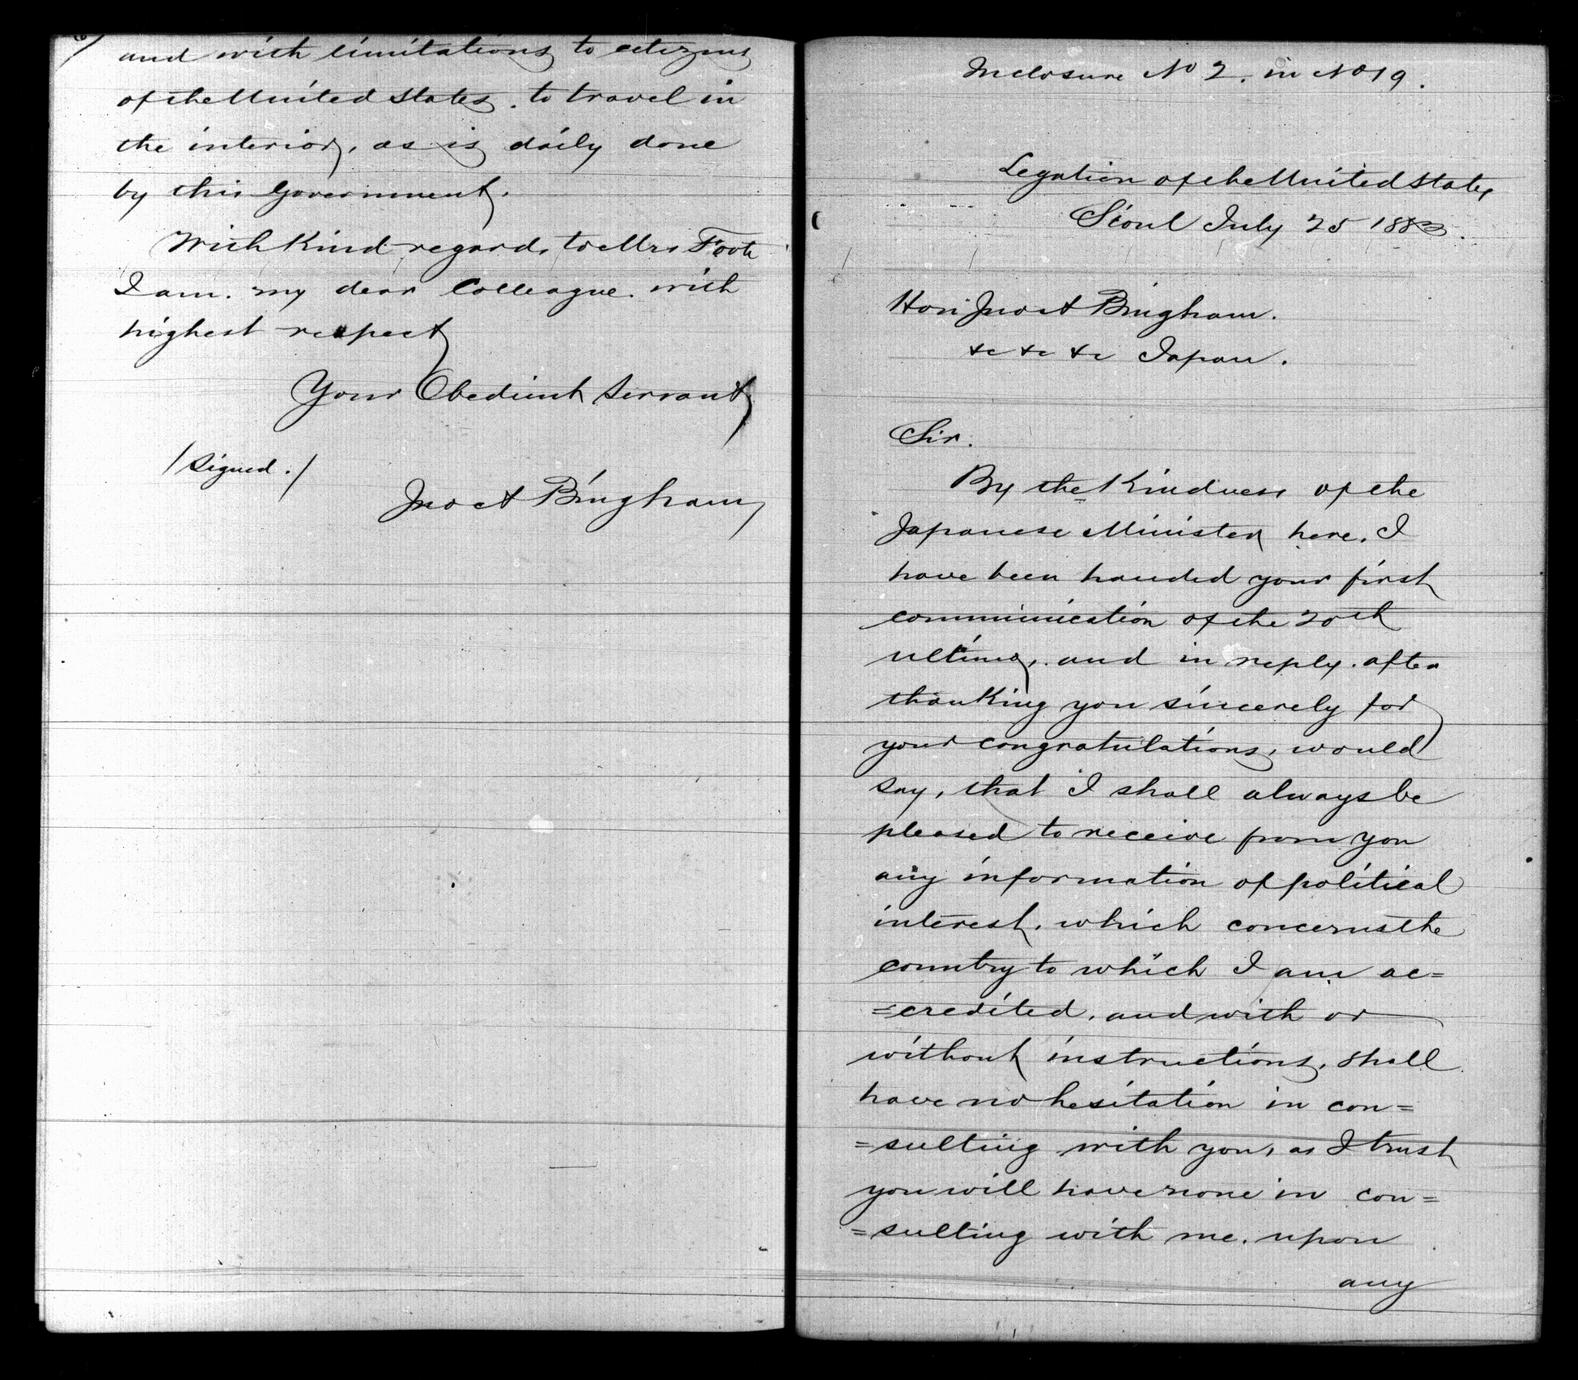 and with limitations to citizens
of the United States. to travel in
the interior, as is daily done
by this Government.
With Kind regards to Mrs Foote
I am. my dear Colleague. with
highest respect
Your Obedient Servant
/signed./
Jno A Bingham
Inclosure No 2. in No 19.
Legation of the United States
Séoul July 25 1883.
Hon Jno A Bingham.
&c &c &c Japan.
Sir.
By the Kindness of the
Japanese Minister here. I
have been handed your first
communication of the 20th
ultimo, and in reply. after
thanking you sincerely for
your congratulations, would
say, that I shall always be
pleased to receive from you
any information of political
interest. which concerns the
country to which I am ac=
=credited. and with or
without instructions, shall
have no hesitation in con=
=sulting with you, as I trust
you will have none in con=
=sulting with me. upon
any